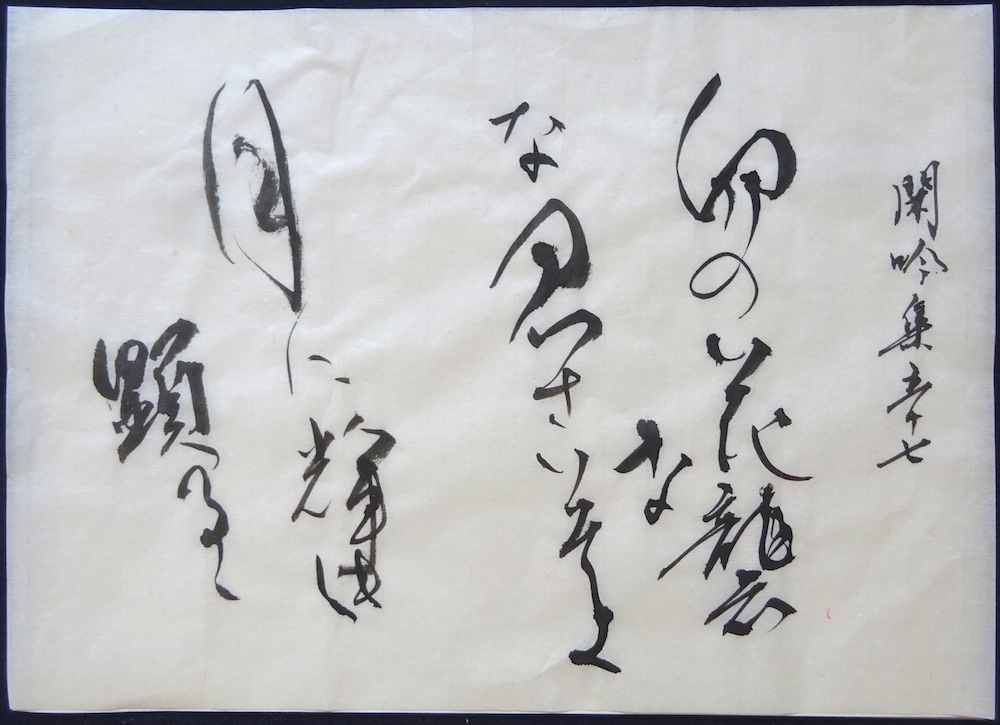 閑吟集五十七
卯の花襲な
な召さいそよ
月に輝き
顕るる